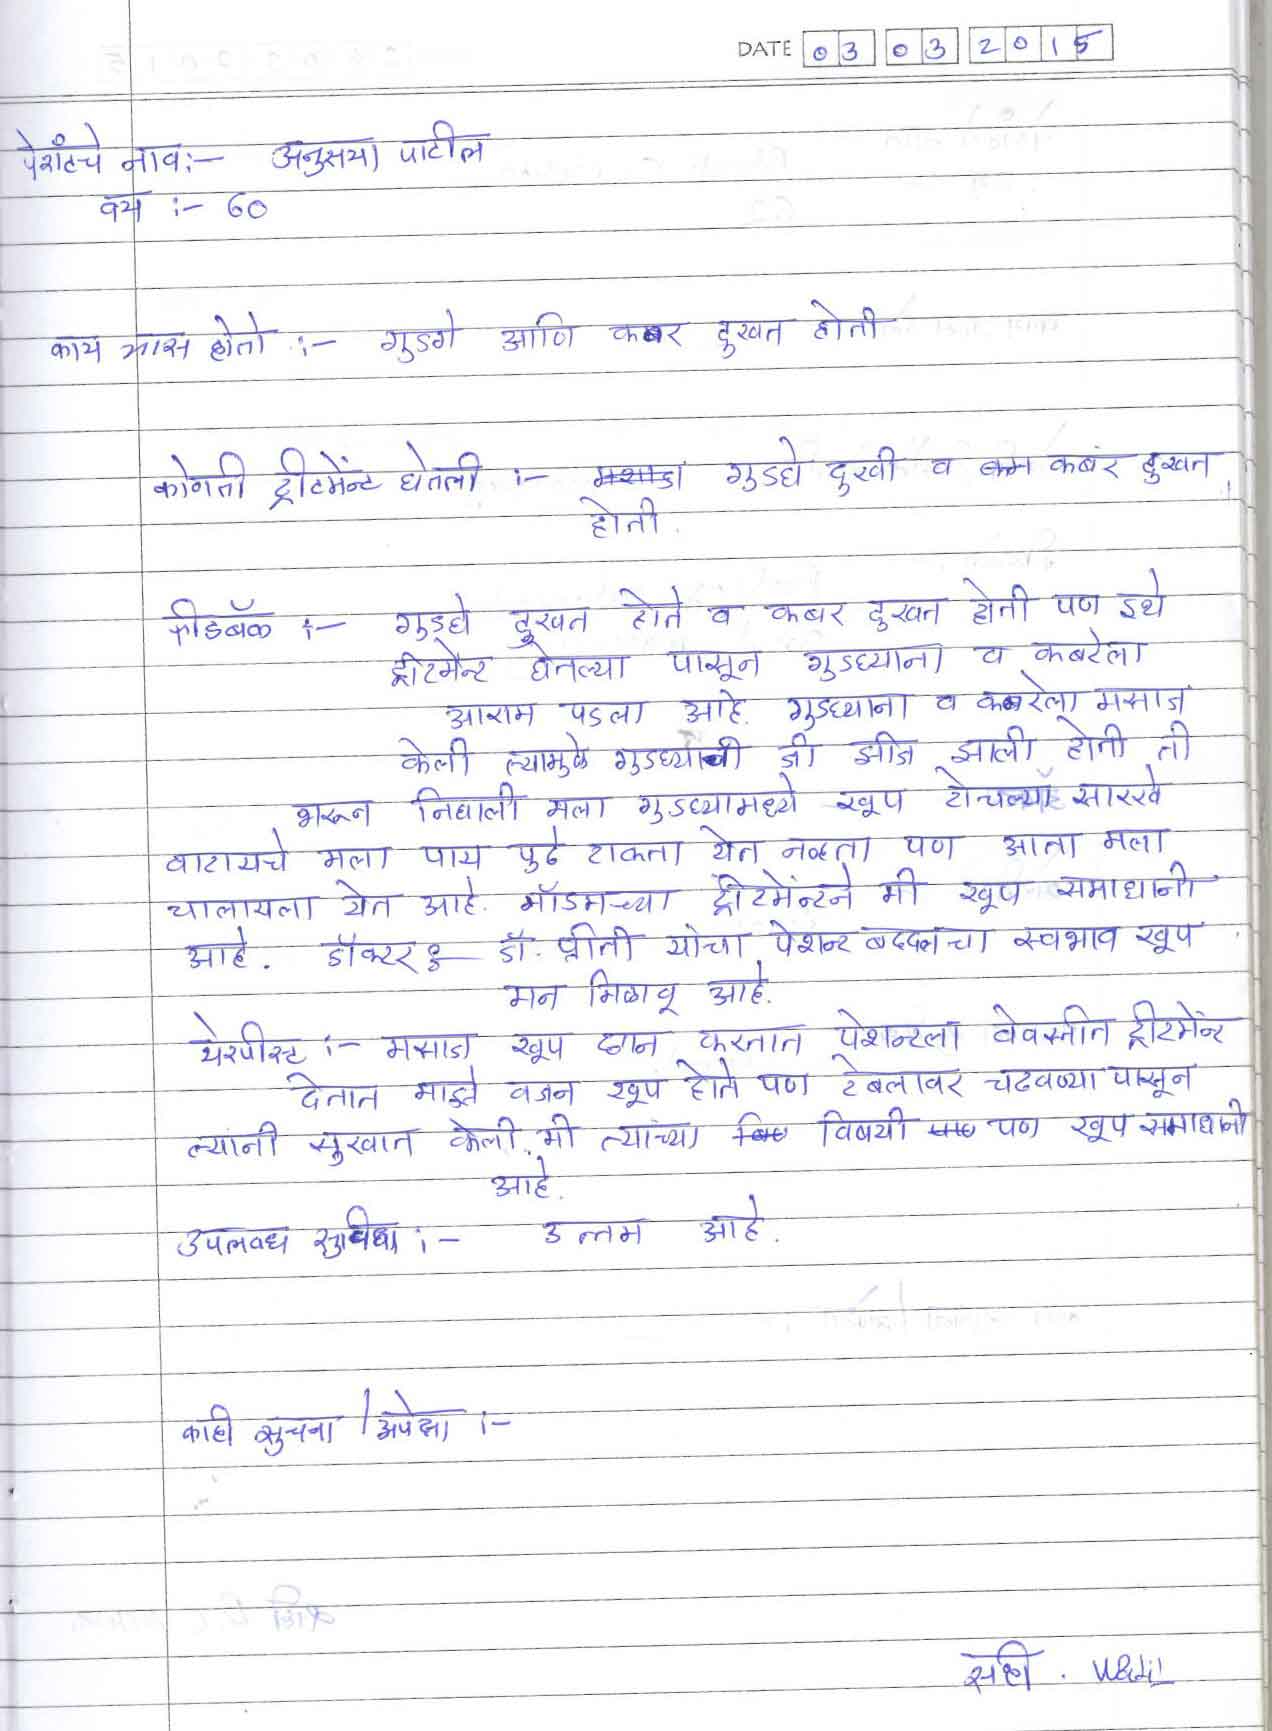 DATE 03 03 2015
पेशंटचे नाव :- अनुसया पाटील
वय :- 60
काय त्रास होतो :- गुडगे आणि कबर दुखत होती
कोणती ट्रीटमेंन्ट घेतली :- गुडघे दुखी व कबंर दुखत
होती.
फीडबॅक :- गुडघे दुखत होते व कबर दुखत होती पण इथे
ट्रीटमेन्ट घेतल्या पासून गुडघ्याना व कबरेला
आराम पडला आहे. गुडघ्याना व कबरेला मसाज
केली त्यामुळे गुडघ्याची जी झीज झाली होती ती
भरून निघाली मला गुडघ्यामध्ये खूप टोचल्या सारखे
वाटायचे मला पाय पुढे टाकता येत नव्हता पण आता मला
चालायला येत आहे. मॉडमच्या ट्रीटमेंन्टने मी खूप समाधानी
आहे. डॉक्टर :- डॉ. प्रीती यांचा पेशन्ट बद्दलचा स्वभाव खूप
मन मिळावू आहे.
थेरपीस्ट :- मसाज खूप छान करतात पेशन्टला वेवस्तीत ट्रीटमेंन्ट
देतात माझे वजन खूप होते पण टेबलावर चढवण्या पासून
त्यांनी सुरवात केली. मी त्यांच्या विषयी पण खूप समाधानी
आहे.
उपलवध सुविधा :- उत्तम आहे.
काही सुचना / अपेक्षा :-
सही.